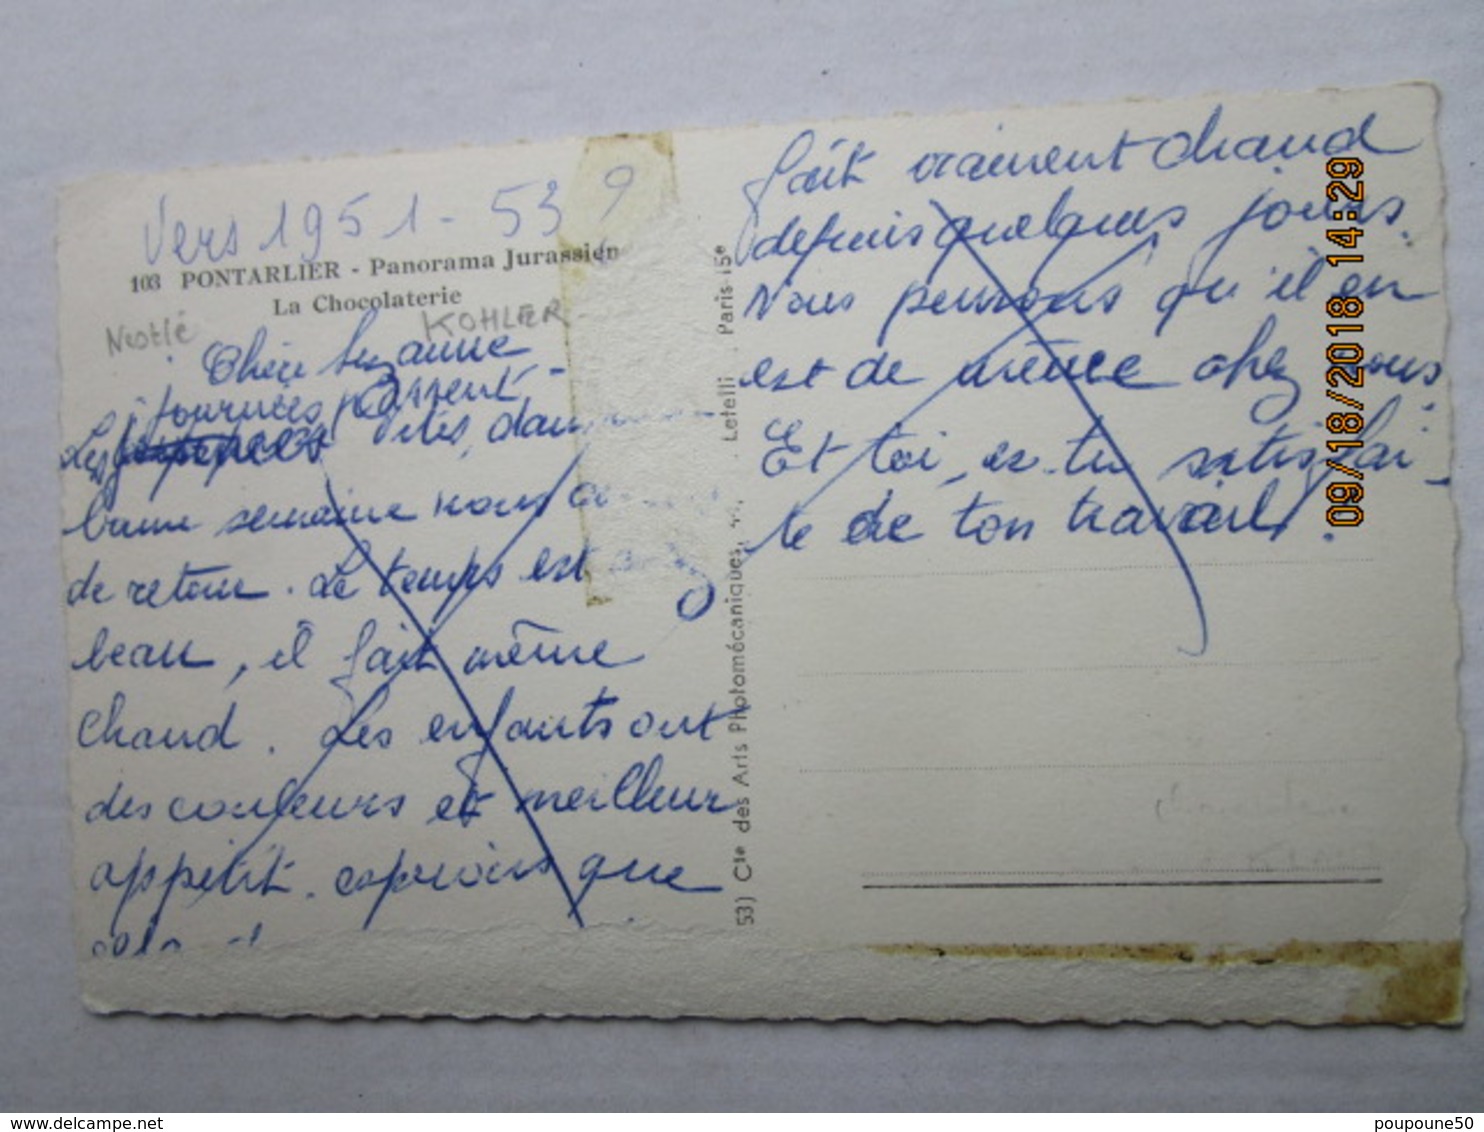 Vers 1951-53 ?
103 PONTARLIER - Panorama Jurassien
La Chocolaterie
Nestlé KOHLER
Chère Suzanne
journées passent
Les vites, dans
bonne semaine nous
de retour. Le temps est
beau, il fait même
chaud. Les enfants ont
des couleurs et meilleur
appétit. espérons que
cela
53) Cie des Arts Photomécaniques, Letelli Paris-15e
fait vraiment chaud
depuis quelques jours.
Nous pensons qu'il en
est de même chez vous
Et toi, es tu satisfai-
te de ton travail.
09/18/2018 14:29
poupoune50